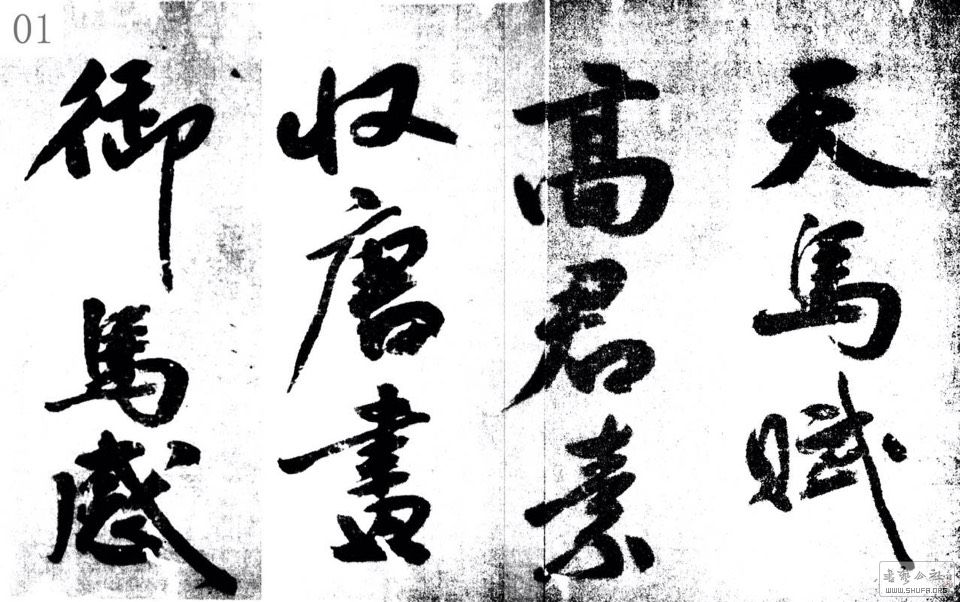 01
天馬賦
高君素
収唐畫
御馬感
WWW.SHUFA.ORG